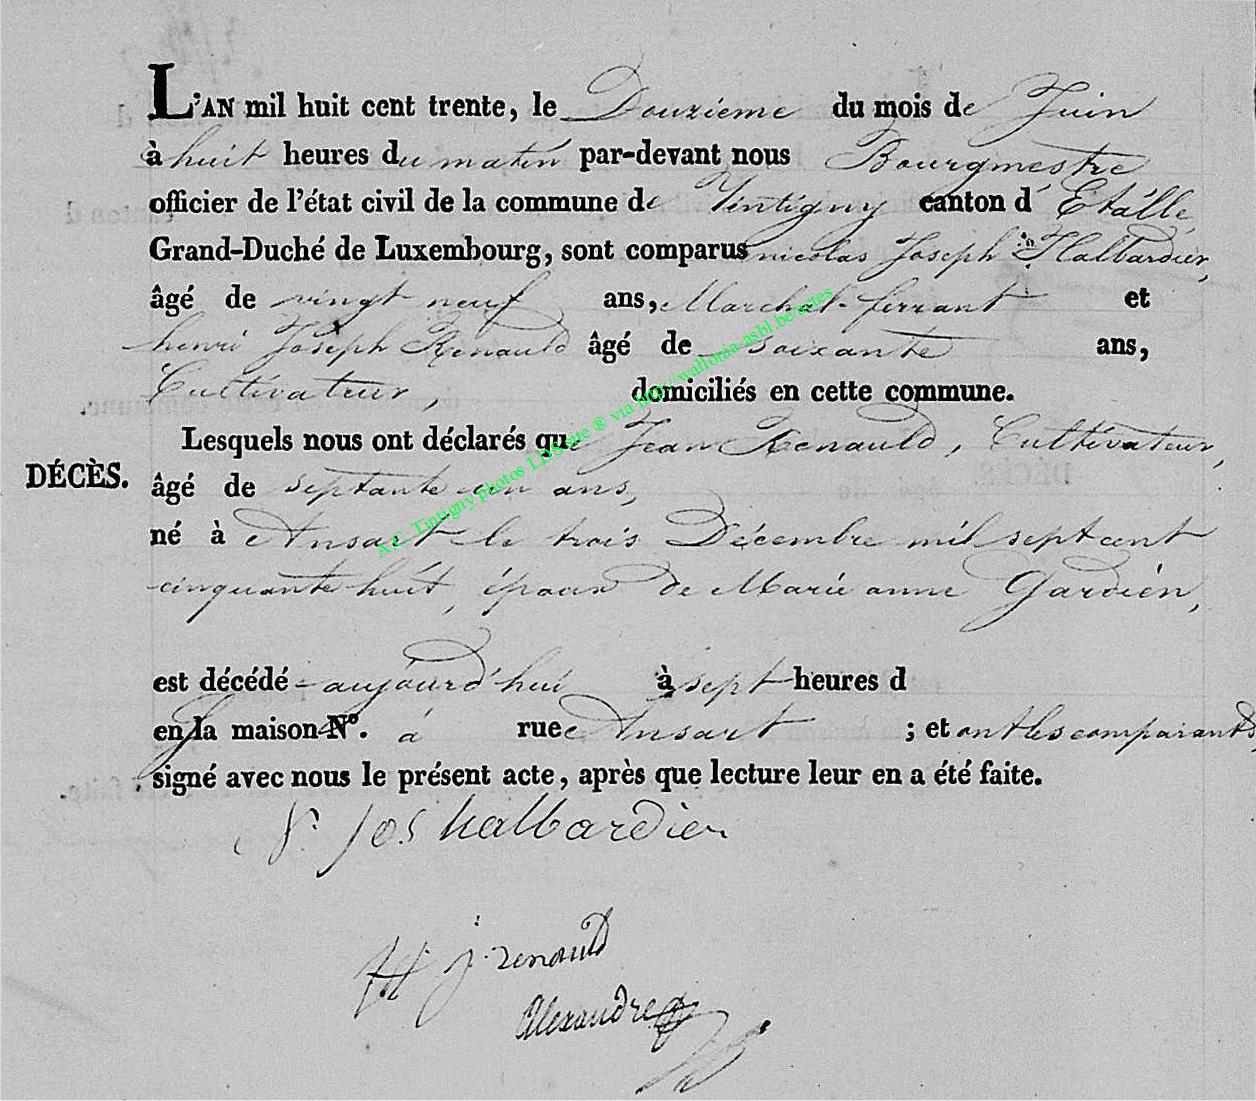 L'AN mil huit cent trente, le Douzieme du mois de Juin
à huit heures du matin par-devant nous Bourgmestre
officier de l'état civil de la commune de Tintigny canton d'Etalle,
Grand-Duché de Luxembourg, sont comparus nicolas Joseph Halbardier,
âgé de vingt neuf ans, Marchal-ferrant et
henri Joseph Renauld âgé de soixante ans,
Cultivateur, domiciliés en cette commune.
Lesquels nous ont déclarés que Jean Renauld, Cultivateur,
DÉCÈS.
âgé de septante un ans,
né à Ansart le trois Décembre mil sept cent
cinquante huit, époux de Marie anne Gardien,
est décédé aujourd'hui à sept heures d
en la maison N°. à rue Ansart ; et ont les comparants
signé avec nous le présent acte, après que lecture leur en a été faite.
N. Jos halbardier
H j. renauld
Alexandre
A.C. Tintigny photos LDS site ® via http://wallonia-asbl.be/actes